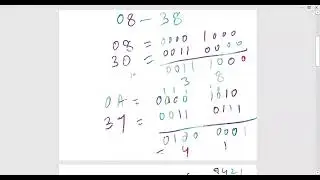 08 — 38
08 = 0000 1000
30 = 0011 0000
0011 1000
3 8
0A = 0000 1010
37 = 0011 0111
0100 0001
= 4 1
8421